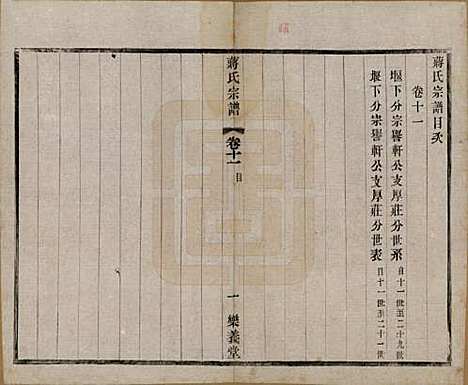 蔣氏宗譜目次
卷十一
堰下分宗譽軒公支厚莊分世系 自十一世至二十九世
堰下分宗譽軒公支厚莊分世表 自十一世至二十一世
蔣氏宗譜 卷十一 目 一 樂善堂